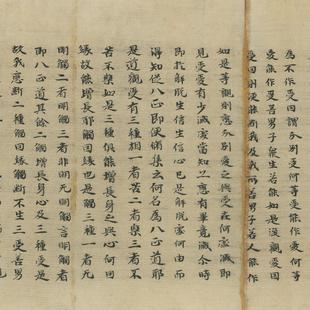 為不作受因謂分別受何等受能作愛何等
愛能作受善男子衆生若能如是深觀愛因
受因則便能斷我及我所善男子若人能作
如是等觀則應分別愛之與受在何處滅即
見愛受有少滅處當知亦應有畢竟滅尒時
即於解脫生信生信心已是解脫處何由而
得知從八正即便脩集云何名為八正道耶
是道觀受有三種相一者苦二者樂三者不
苦不樂如是三種俱能增長身之與心何因
緣故能增長耶觸因緣也是觸三種一者无
明觸二者明觸三者非明无明觸言明觸者
即八正道其餘二觸增長身心及三種受是
故我應斷二種觸因緣觸斷不生三受善男